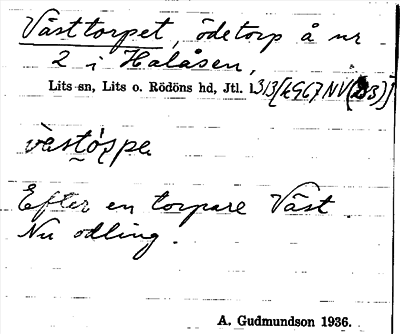 Västtorpet, ödetorp å nr
2 i Halåsen,
Lits sn, Lits o. Rödöns hd, Jtl.
Efter en torpare Väst.
Nu odling.
A. Gudmundson 1936.